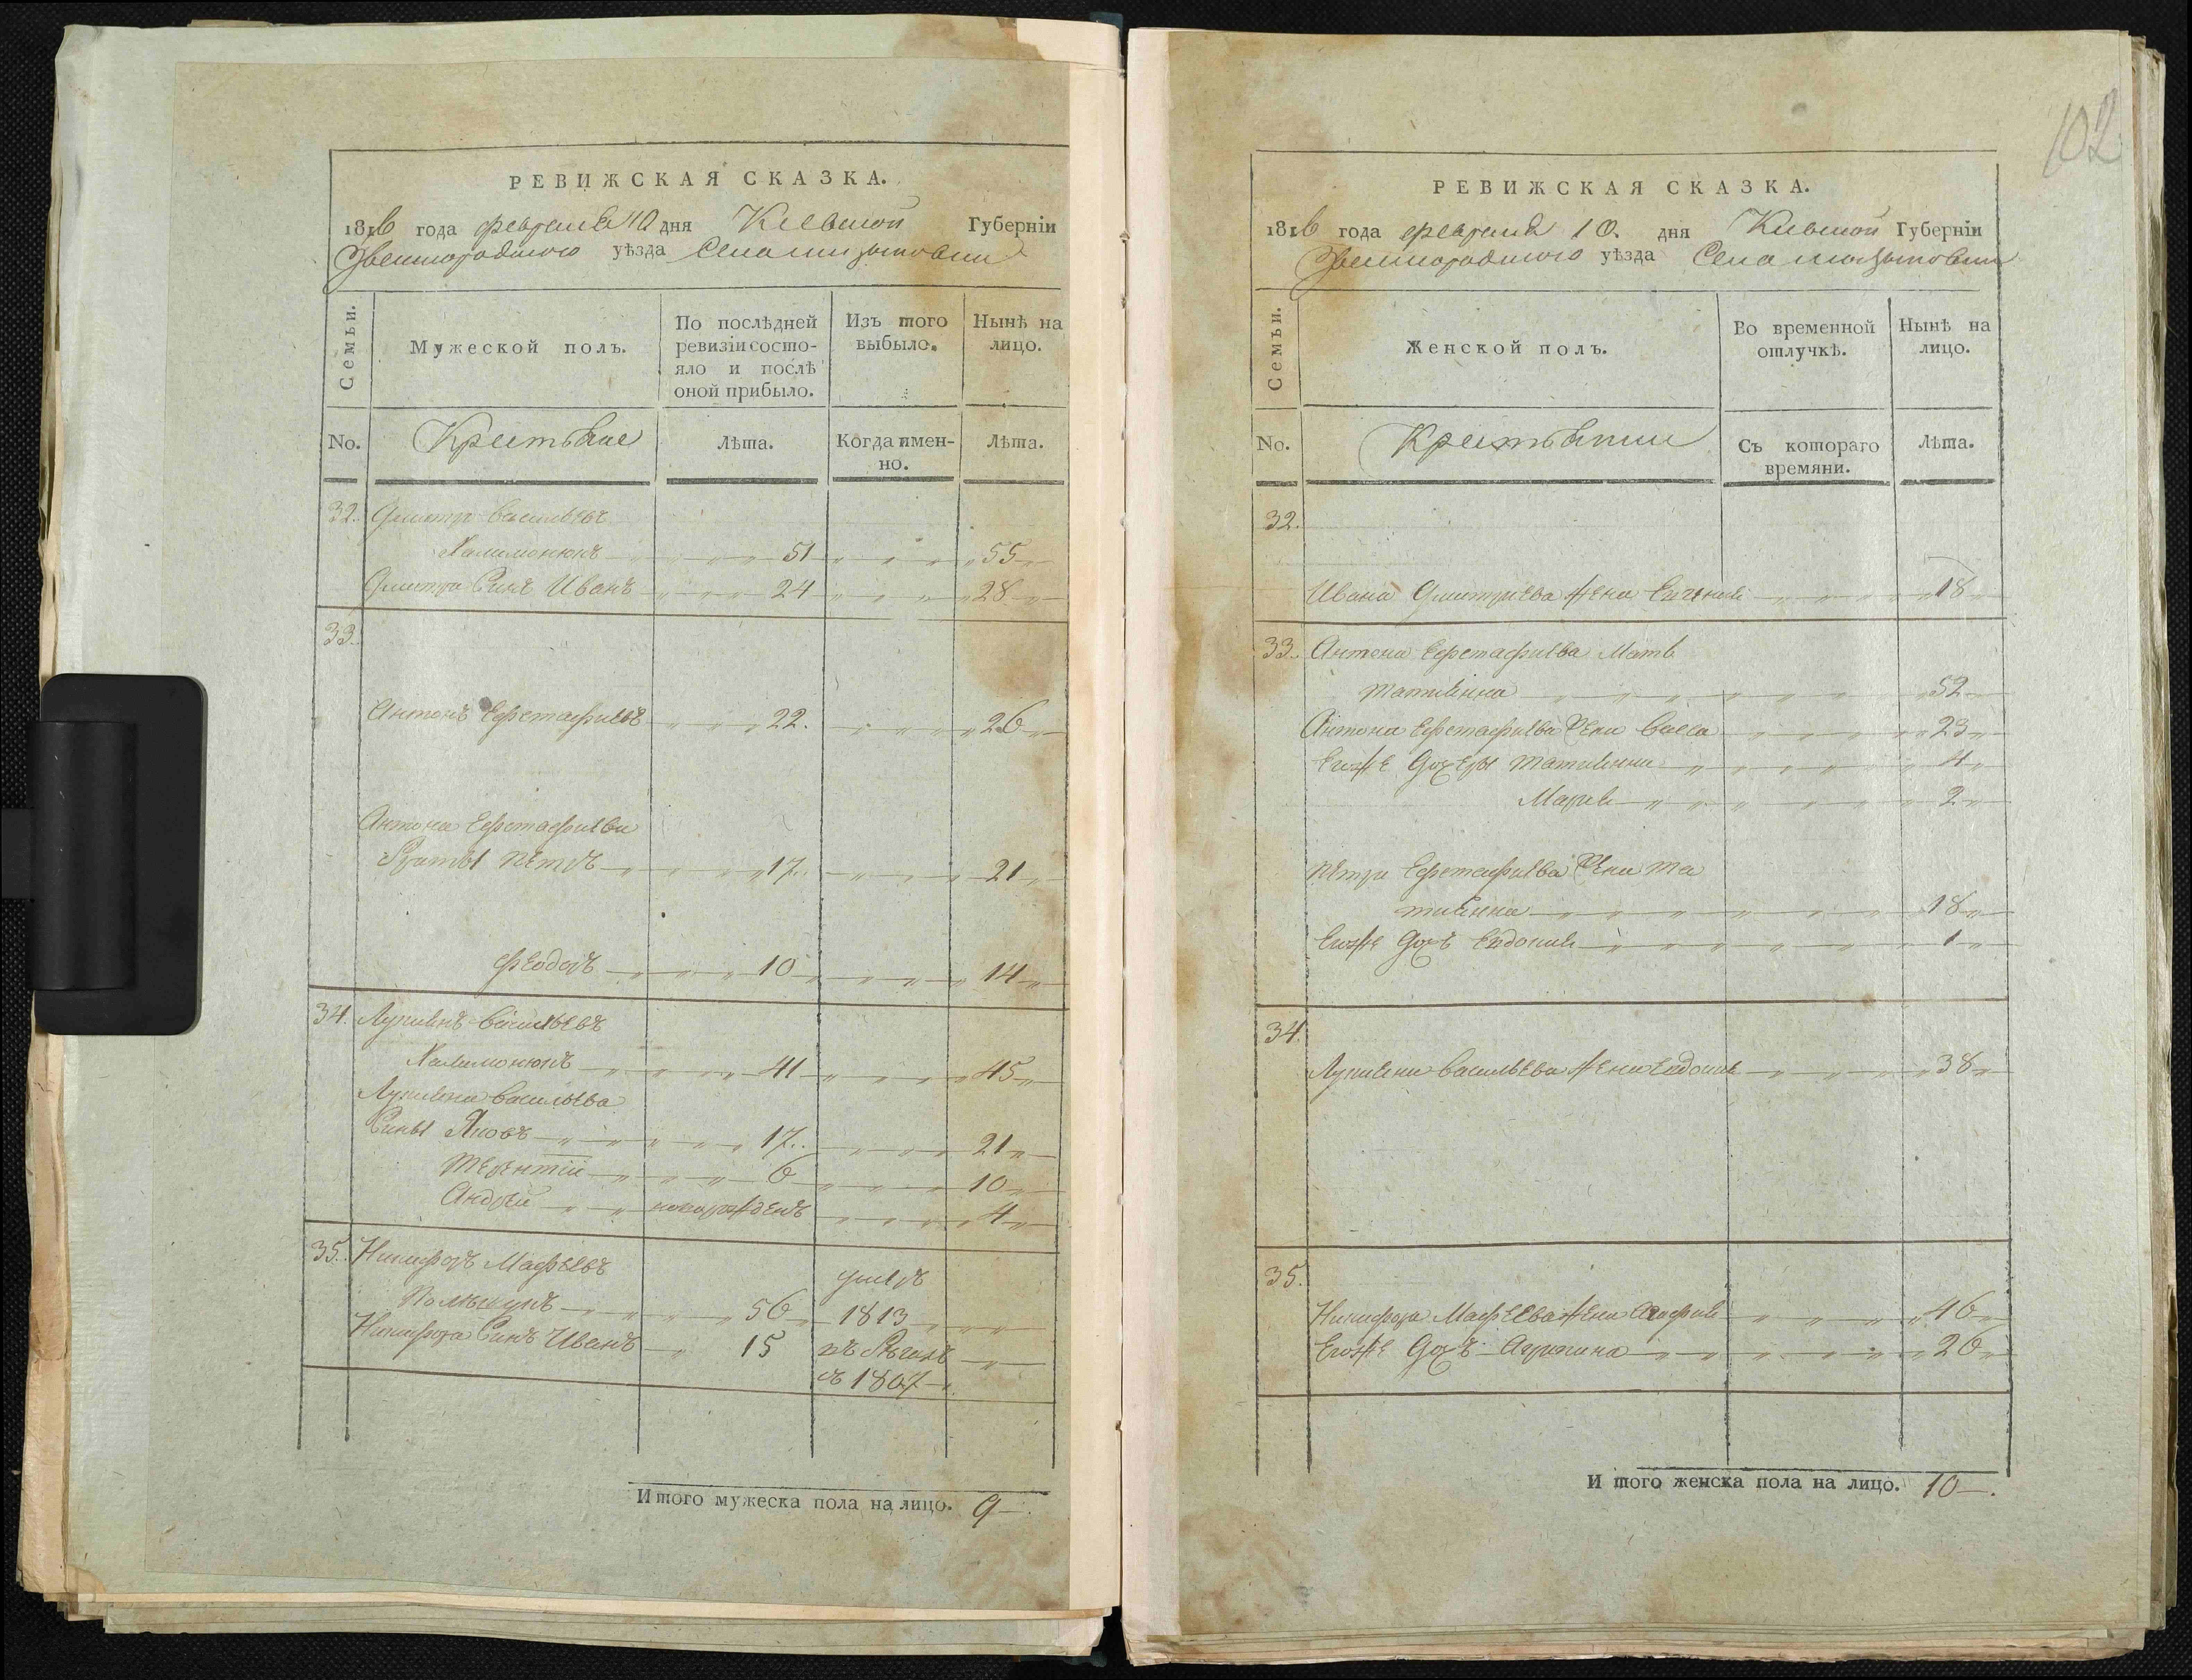 РЕВИЖСКАЯ СКАЗКА.
1816 года февраля 10 дня Киевской Губерніи
Звенигородского уѣзда Села
Семьи.
Мужеской полъ.
По послѣдней ревизіи состояло и послѣ оной прибыло.
Изъ того выбыло.
Нынѣ на лицо.
No.
Крестьяне
Лѣта.
Когда именно.
Лѣта.
32. Дмитрѣ Васильевъ
Халимонюкъ 51 55
Дмитра Синъ Иванъ 24 28
33.
Антонъ Евстафиевъ 22. 26
Антона Евстафиева
Браты Петръ 17. 21
Феодоръ 10 14
34. Лукиянъ Васильевъ
Халимонюкъ 41 45
Лукияна Васильева
Сины Яковъ 17. 21
Терентій 6 10
Андрѣй новорожденъ 4
35. Никифоръ Мафѣевъ умеръ
56 1813
Никифора Синъ Иванъ 15 въ бѣгахъ
съ 1807
Итого мужеска пола на лицо. 9
102
РЕВИЖСКАЯ СКАЗКА.
1816 года февраля 10. дня Киевской Губерніи
Звенигородского уѣзда Села
Семьи.
Женской полъ.
Во временной отлучкѣ.
Нынѣ на лицо.
No.
Крестьянки
Съ котораго времяни.
Лѣта.
32.
Ивана Дмитриева жена Евгения 18
33. Антона Евстафиева Мать
Татиянна 52
Антона Евстафиева жена Васса 23
Егоже дочеры Татиянна 4
Мария 2
Петра Евстафиева жена Та
тиянна 18
Егоже дочь Евдокия 1
34.
Лукияна Васильева жена Евдокия 38
35.
Никифора Мафеева жена Агафия 46
Егоже дочь Агрипина 26
Итого женска пола на лицо. 10